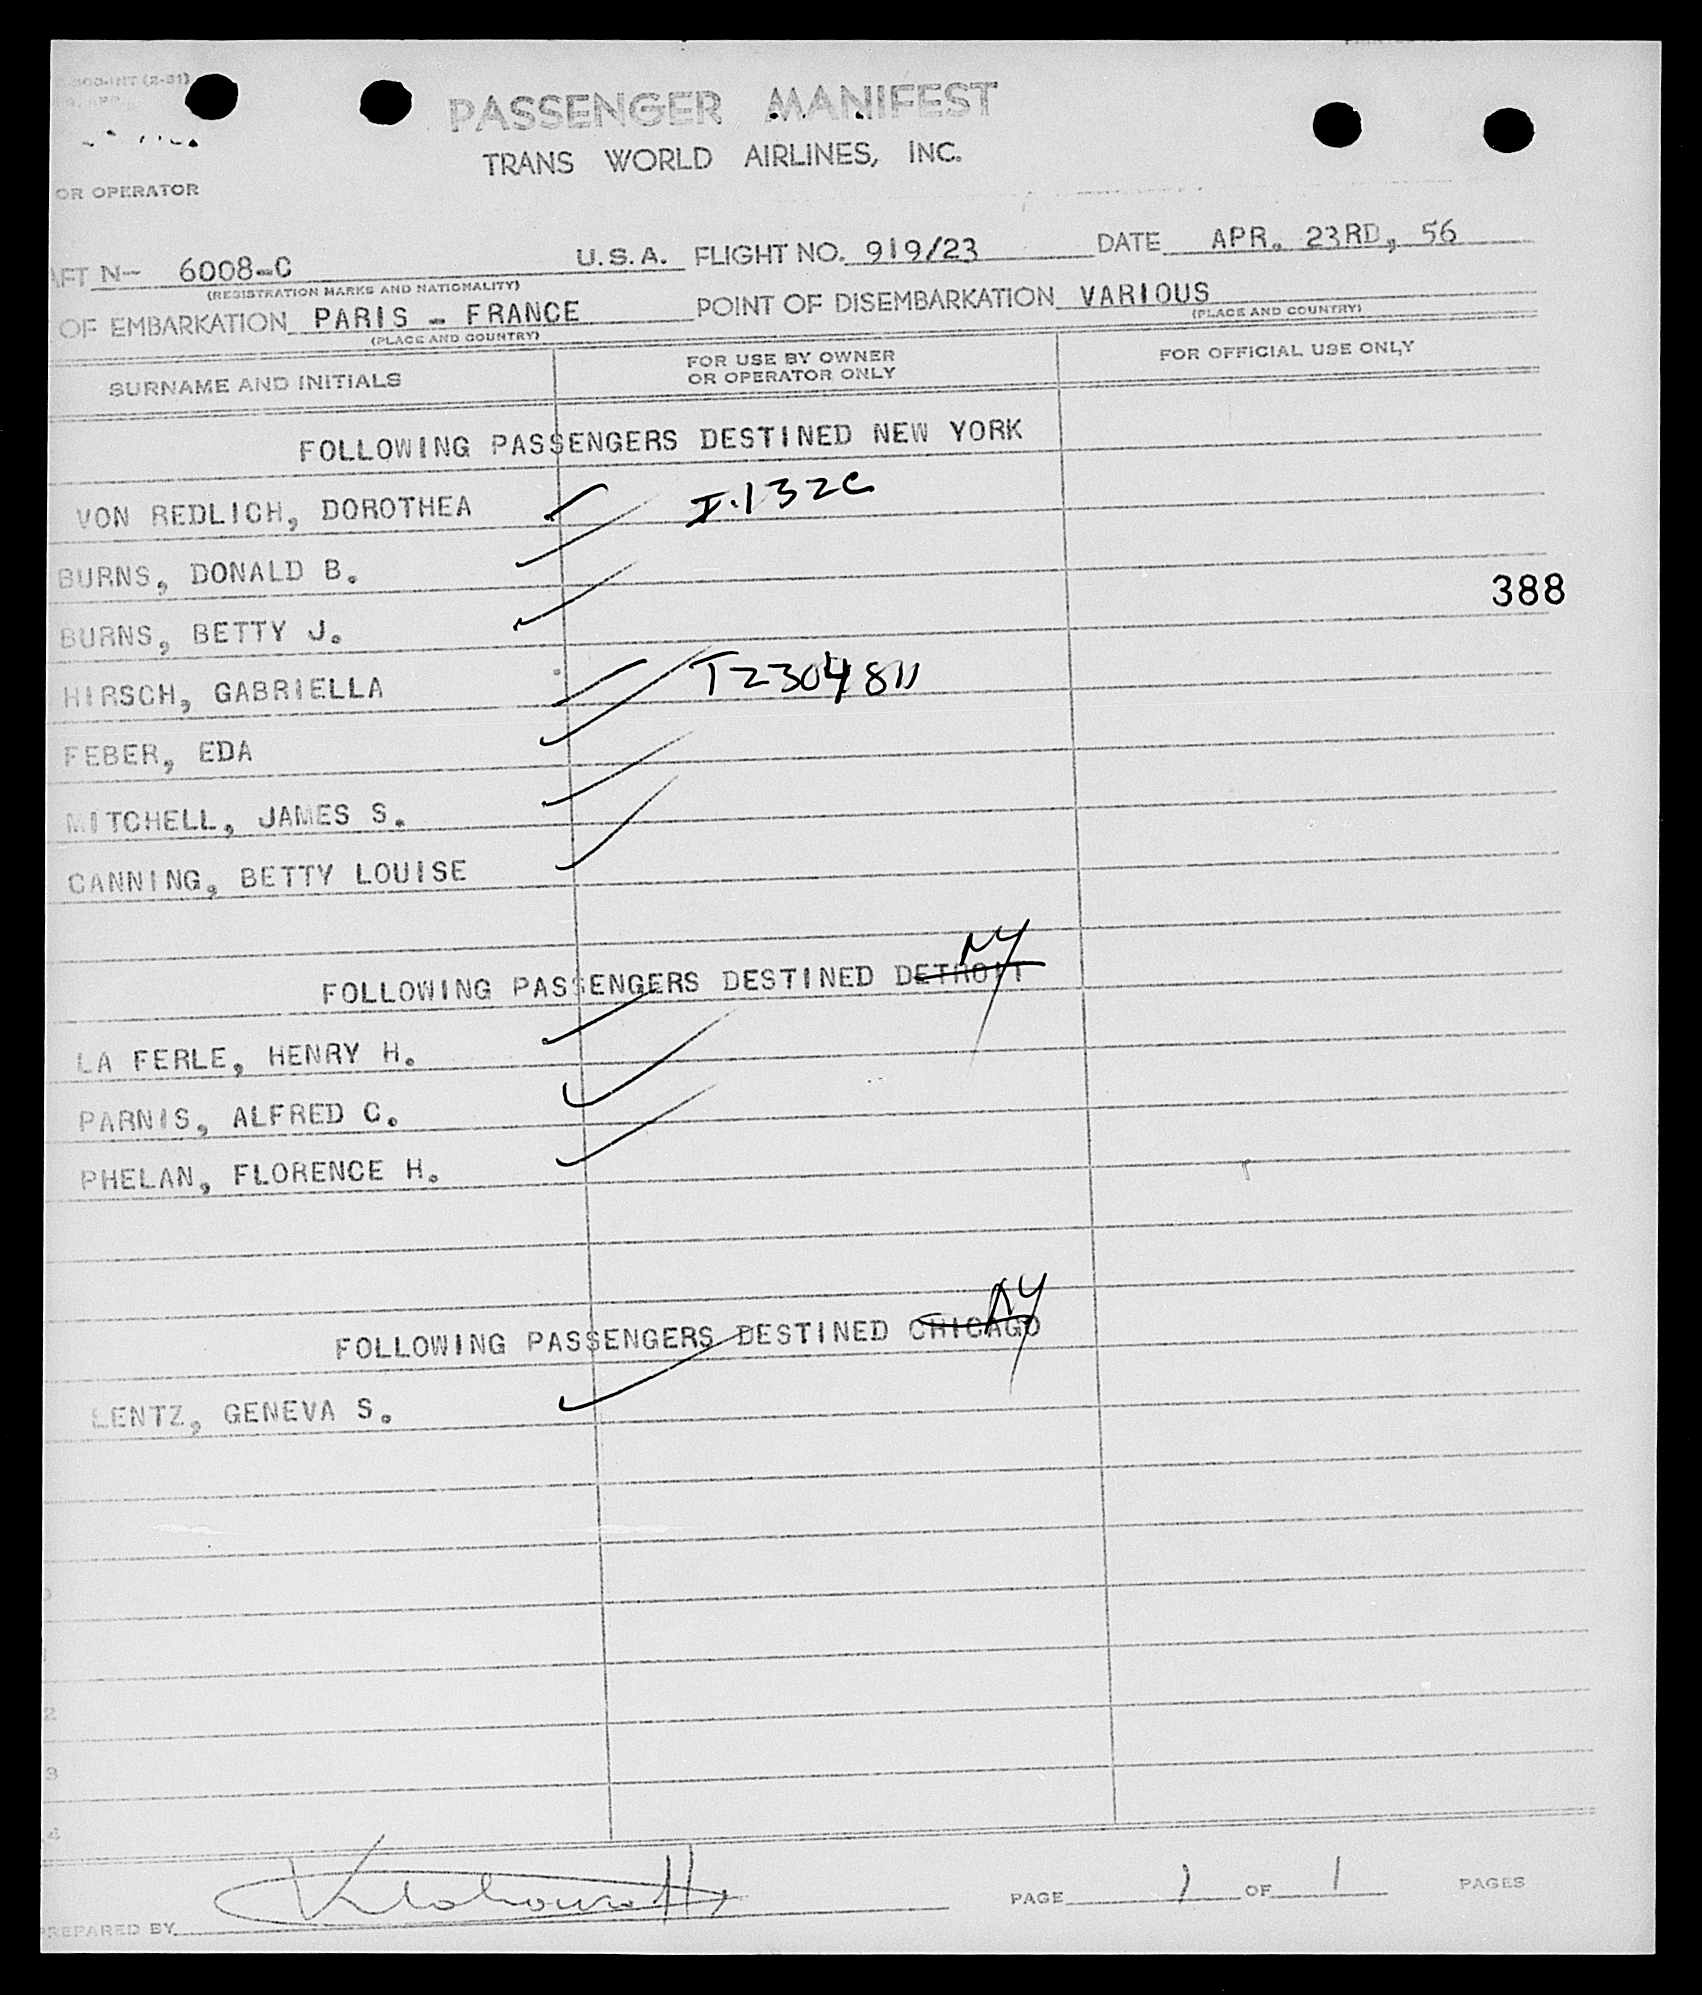 PASSENGER MANIFEST
TRANS WORLD AIRLINES, INC.
OR OPERATOR
AFT N- 6008-C U.S.A. FLIGHT NO. 919/23 DATE APR. 23RD, 56
(REGISTRATION MARKS AND NATIONALITY)
OF EMBARKATION PARIS - FRANCE POINT OF DISEMBARKATION VARIOUS
(PLACE AND COUNTRY) (PLACE AND COUNTRY)
SURNAME AND INITIALS FOR USE BY OWNER OR OPERATOR ONLY FOR OFFICIAL USE ONLY
FOLLOWING PASSENGERS DESTINED NEW YORK
VON REDLICH, DOROTHEA I.132C
BURNS, DONALD B.
388
BURNS, BETTY J.
HIRSCH, GABRIELLA T2304811
FEBER, EDA
MITCHELL, JAMES S.
CANNING, BETTY LOUISE
NY
FOLLOWING PASSENGERS DESTINED DETROIT
LA FERLE, HENRY H.
PARNIS, ALFRED C.
PHELAN, FLORENCE H.
NY
FOLLOWING PASSENGERS DESTINED CHICAGO
LENTZ, GENEVA S.
2
3
4
PREPARED BY PAGE 1 OF 1 PAGES